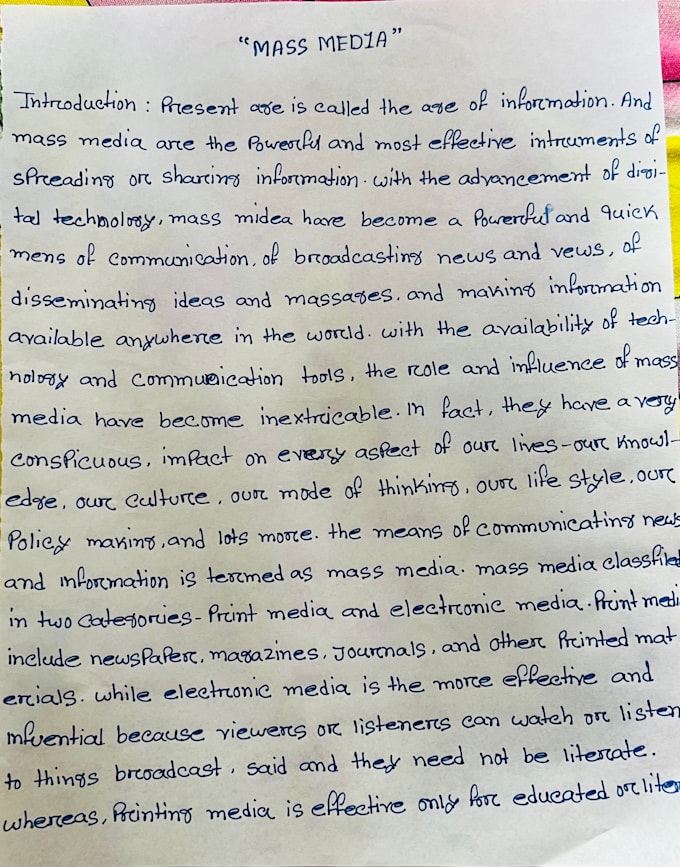 "MASS MEDIA"
Introduction : Present age is called the age of information. And
mass media are the Powerful and most effective intruments of
spreading or sharing information. with the advancement of digi-
tal technology, mass midea have become a Powerful and quick
mens of communication, of broadcasting news and vews, of
disseminating ideas and massages, and making information
available anywhere in the world. with the availability of tech-
nology and communication tools, the role and influence of mass
media have become inextricable. In fact, they have a very
conspicuous, impact on every aspect of our lives-our knowl-
edge, our culture, our mode of thinking, our life style, our
Policy making, and lots more. the means of communicating news
and information is termed as mass media. mass media classfied
in two categories- Print media and electronic media. Print medi
include newspaper, magazines, Journals, and other Printed mat
erials. while electronic media is the more effective and
infuential because viewers or listeners can watch or listen
to things broadcast, said and they need not be literate.
whereas, Printing media is effective only for educated or liter